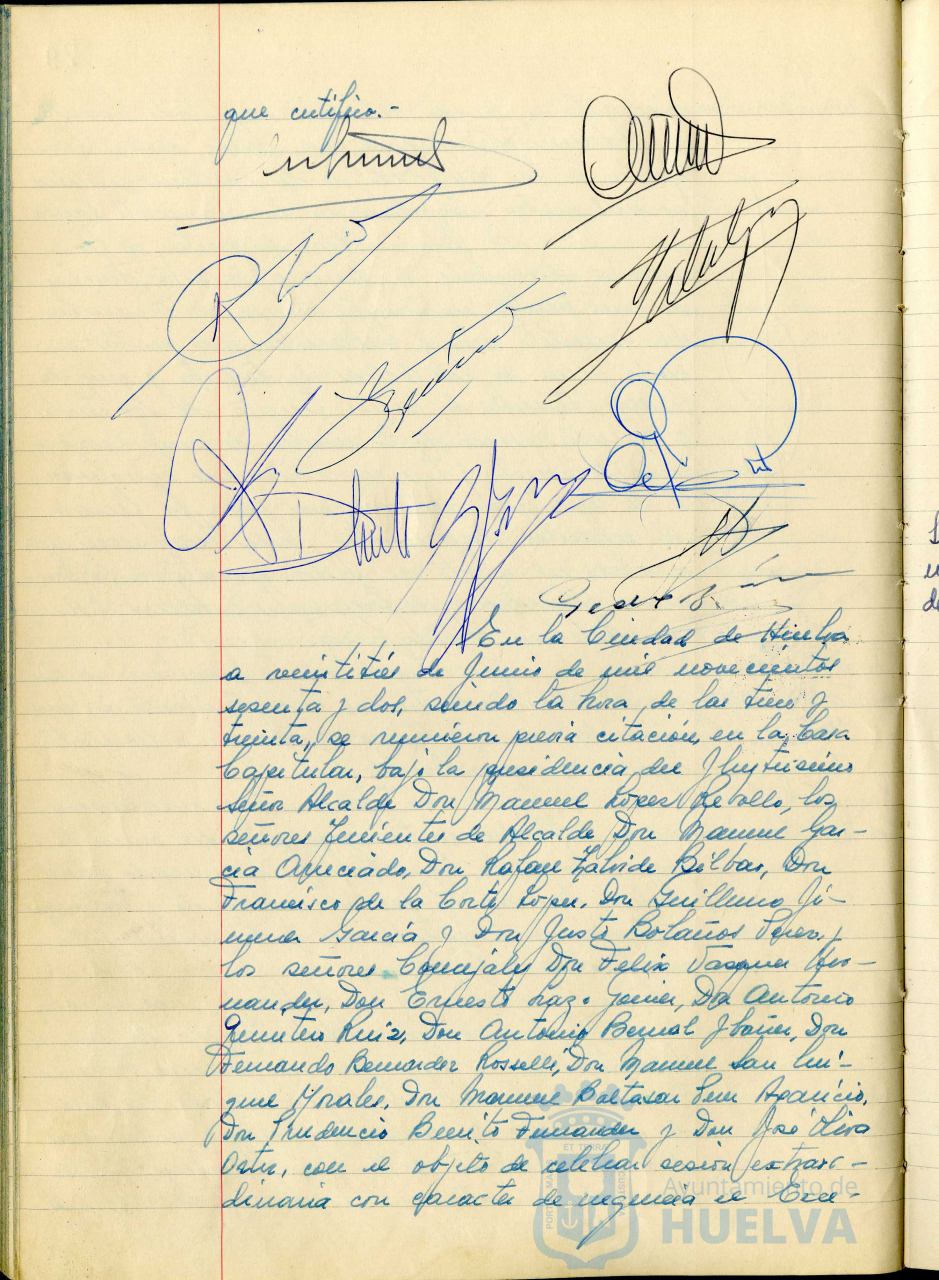 que certifico.-
En la Ciudad de Huelva
a veintitrés de Junio de mil novecientos
sesenta y dos, siendo la hora de las trece y
treinta, se reunieron previa citación, en la Casa
Capitular, bajo la presidencia del Ilustrísimo
Señor Alcalde Don Manuel López Rebollo, los
señores Tenientes de Alcalde Don Manuel Gar-
cía Don Rafael Zalvide Bilbao, Don
Francisco de la Corte López, Don Guillermo Ji-
menez García y Don Justo Bolaños Perez, y
los señores Concejales Don Felix Vazquez Her-
nandez, Don Ernesto Lazo Don Antonio
Ruiz, Don Antonio Bernal Ibañez, Don
Fernando Bernardez Rosselló, Don Manuel San Mi-
guel Morales, Don Manuel Baltasar Aparicio,
Don Prudencio Benito Fernandez y Don José Oliva
con el objeto de celebrar sesión extraor-
dinaria con caracter de urgencia el Exce-
Ayuntamiento de
HUELVA